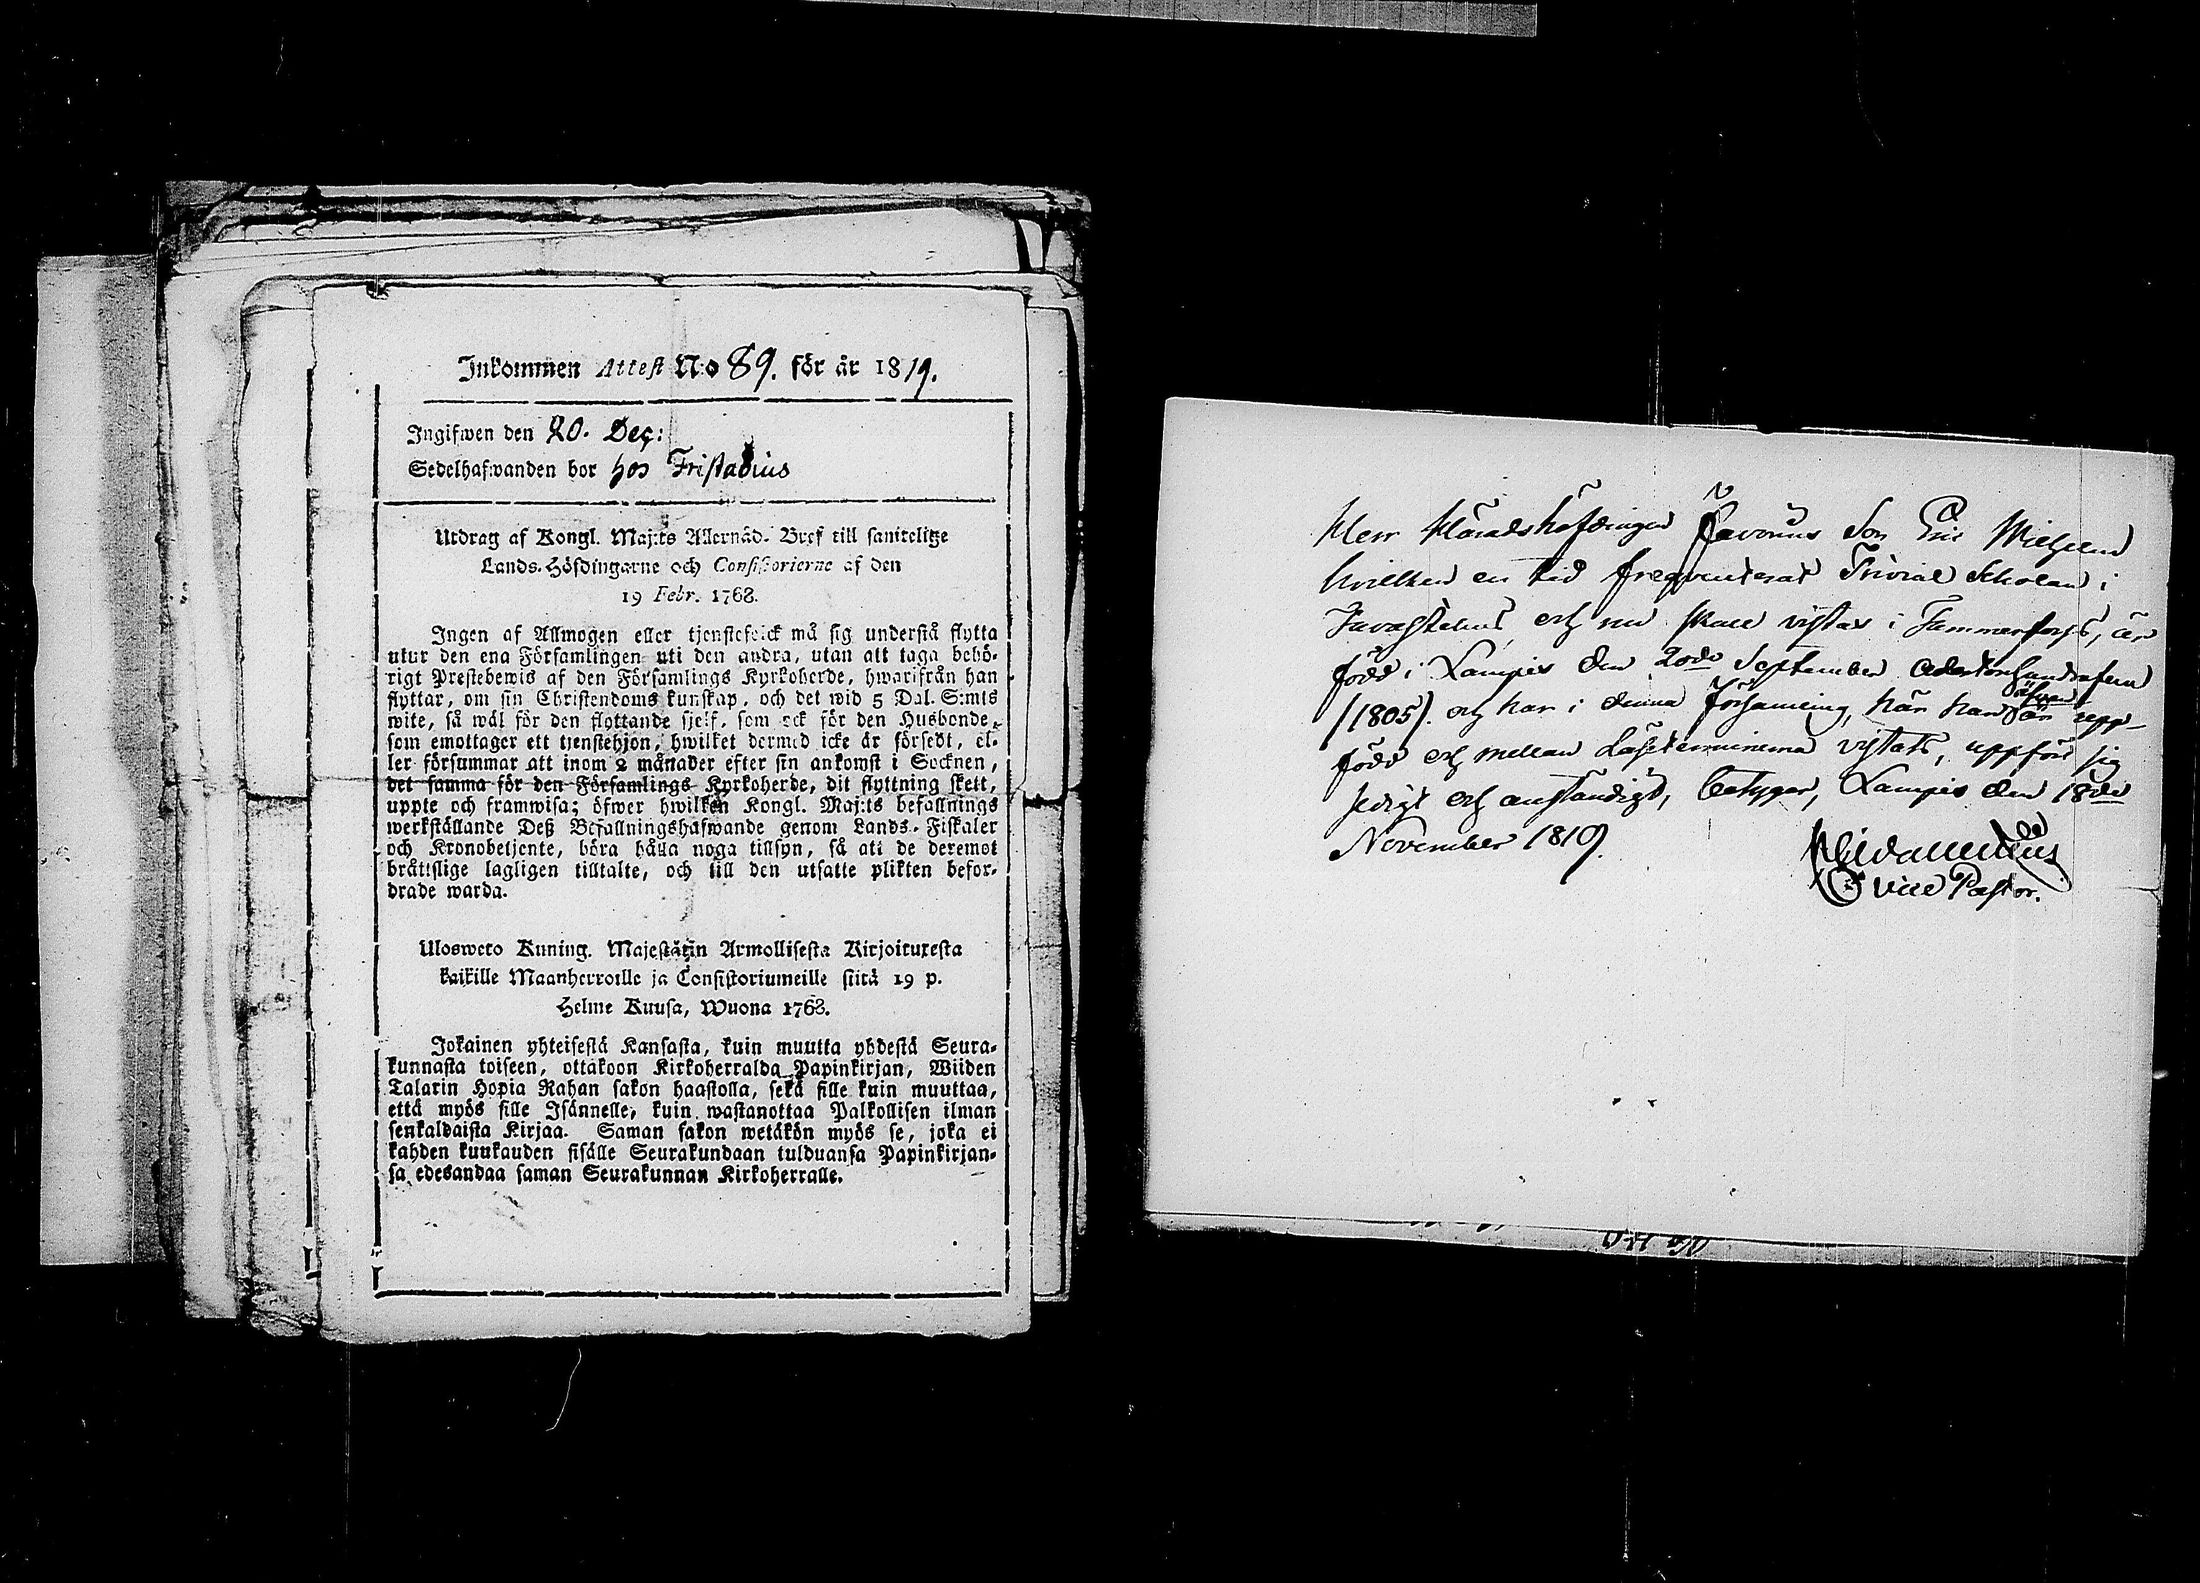 Inkommen Attest N:o 89. för år 1819.
Ingifwen den 20. Dec:
Sedelhafwanden bor hos Fristadius
Utdrag af Kongl. Maj:ts Allernåd. Bref till samtelige
Lands-Höfdingarne och Consistorierne af den
19 Febr. 1768.
Ingen af Allmogen eller tjenstefolck må sig understå flytta
utur den ena Församlingen uti den andra, utan att taga behö-
rigt Prestebewis af den Församlings Kyrkoherde, hwarifrån han
flyttar, om sin Christendoms kunskap, och det wid 5 Dal. S:mts
wite, så wäl för den flyttande sjelf, som ock för den Husbonde,
som emottager ett tjenstehjon, hwilket dermed icke är försedt, el-
ler försummar att inom 2 månader efter sin ankomst i Socknen,
det samma för den Församlings Kyrkoherde, dit flyttning skett,
uppte och framwisa; öfwer hwilken Kongl. Maj:ts befallnings
werkställande Deß Befallningshafwande genom Lands-Fiskaler
och Kronobetjente, böra hålla noga tillsyn, så att de deremot
bråttslige lagligen tilltalte, och till den utsatte plikten befor-
drade warda.
Ulosweto Kuning. Majestätin Armollisesta Kirjoituxesta
kaikille Maanherroille ja Consistoriumeille siitä 19 p.
Helme Kuusa, Wuona 1768.
Jokainen yhteisestä Kansasta, kuin muutta yhdestä Seura-
kunnasta toiseen, ottakoon Kirkoherralda Papinkirjan, Wiiden
Talarin Hopia Rahan sakon haastolla, sekä sille kuin muuttaa,
että myös sille Isännelle, kuin wastanottaa Palkollisen ilman
senkaldaista Kirjaa. Saman sakon wetäkön myös se, joka ei
kahden kuukauden sisälle Seurakundaan tulduansa Papinkirjan-
sa edesandaa saman Seurakunnan Kirkoherralle.
Herr Häradshöfdingen Favorins Son Eric Wilhelm
hvilken en tid freqventerat Trivial Scholan i
Tavastehus, och nu skall vistas i Tammerfors, är
född i Lampis den 20de September adertonhundrafem
(1805). och har i denna Församling, här han äfven är upp-
född och mellan Läseterminerna vistats, uppfört sig
sedigt och anständigt, betygar, Lampis den 18de
November 1819.
vice Pastor.